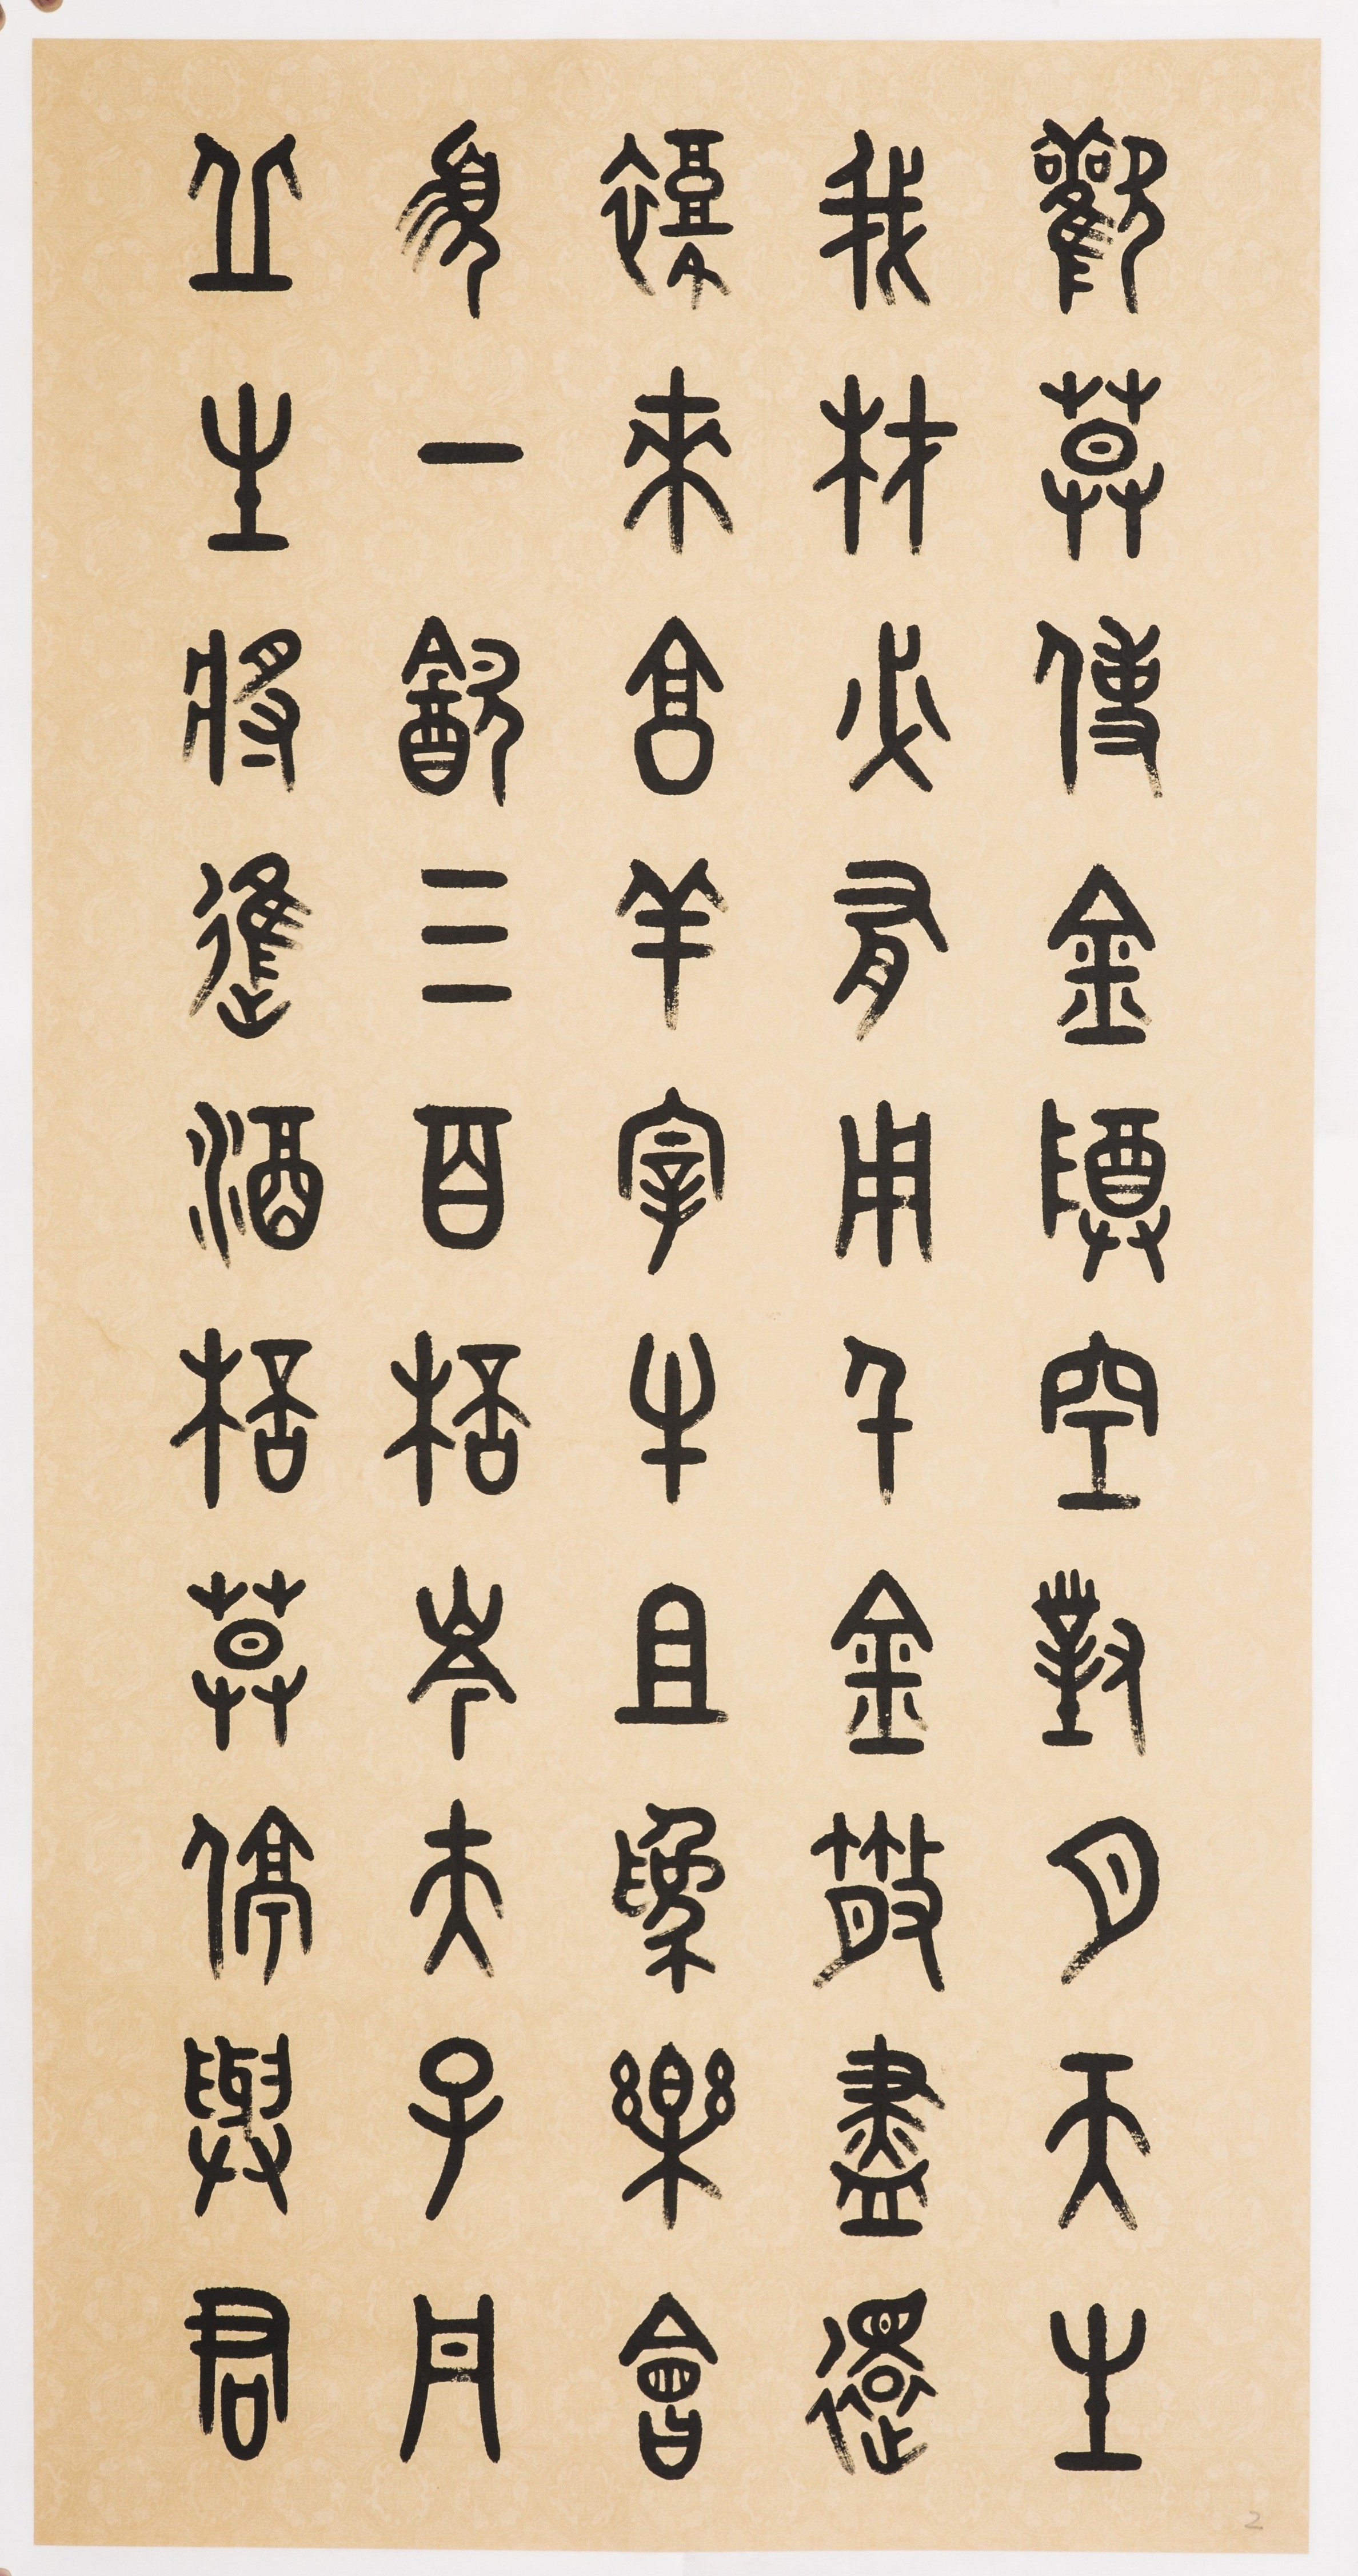 歡莫使金樽空對月天生
我材必有用千金散盡還
復來亯羊宰牛且爲樂會
須一飲三百桮岑夫子丹
丘生將進酒桮莫停與君
2